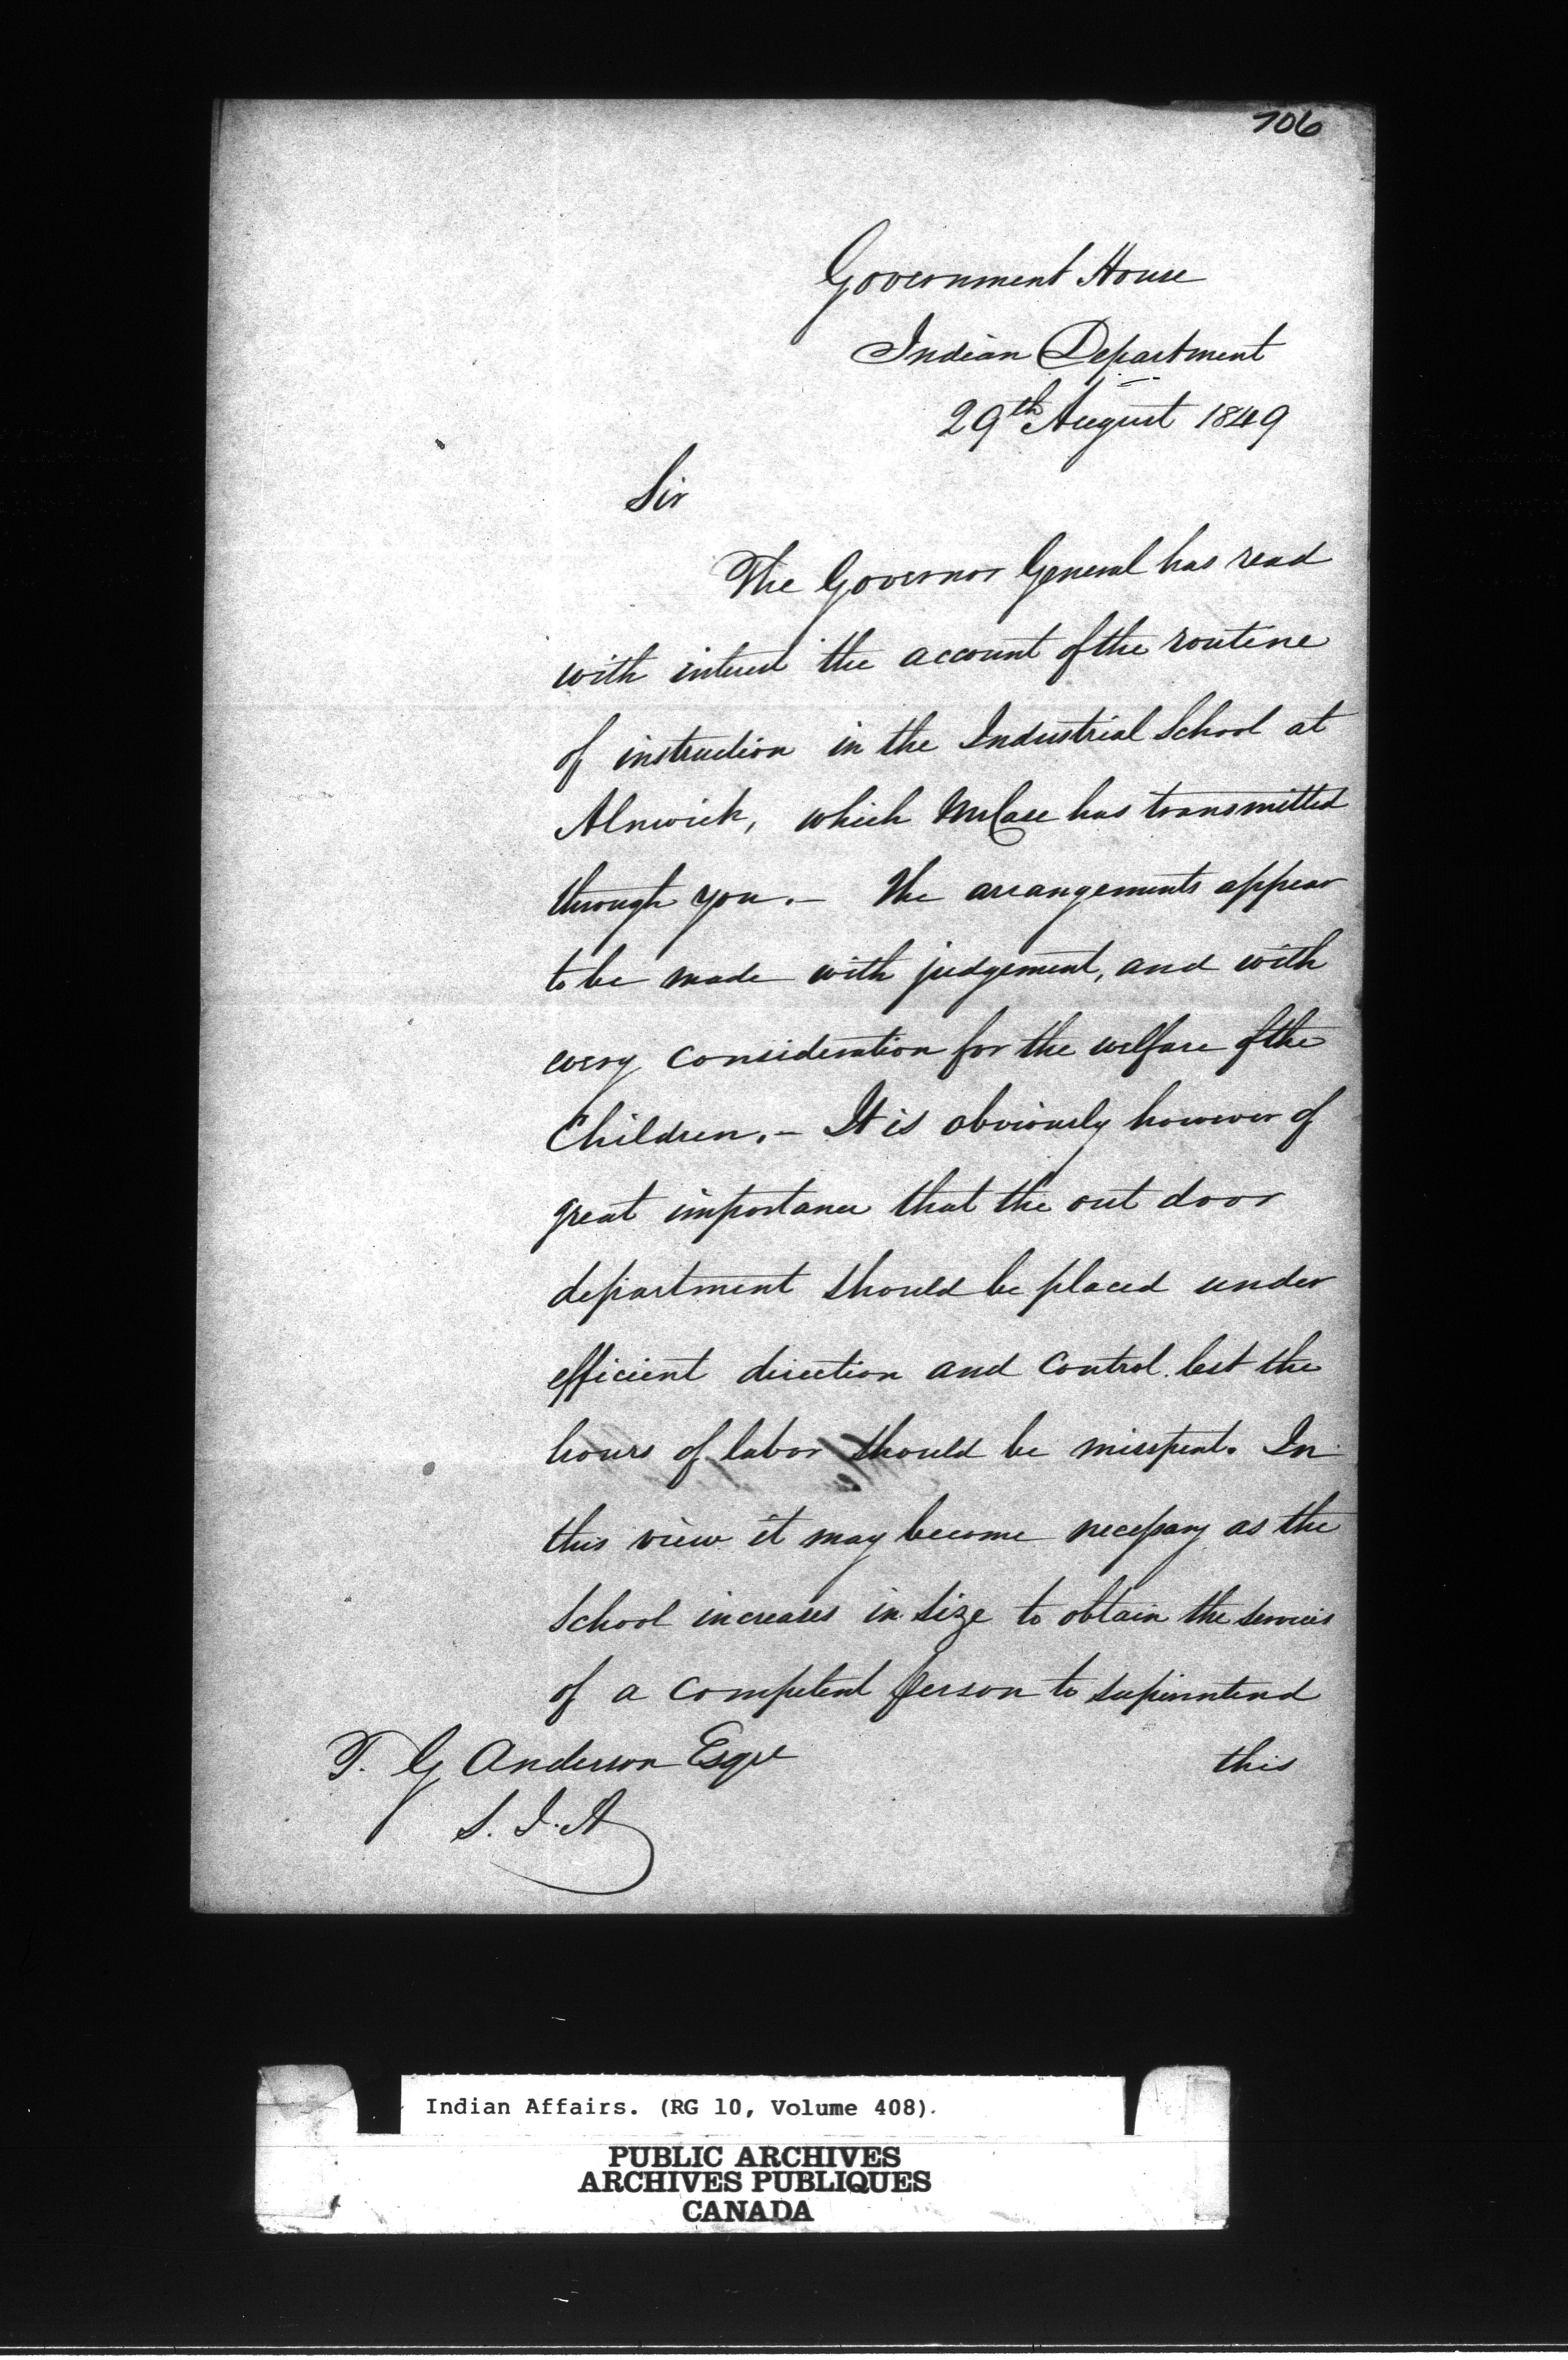 706
Government House
Indian Department
29th August 1849
Sir
The Governor General has read
with interest the account of the routine
of instruction in the Industrial School at
Alnwick, which Mr Case has transmitted
through you. – The arrangements appear
to be made with judgement, and with
every consideration for the welfare of the
Children. – It is obviously however of
great importance that the out door
department should be placed under
efficient direction and control. lest the
hours of labor should be misspent. In
this view it may become necessary as the
School increases in size to obtain the services
of a competent person to superintend
T. G Anderson Esqre
this
S. I. A
Indian Affairs. (RG 10, Volume 408).
PUBLIC ARCHIVES
ARCHIVES PUBLIQUES
CANADA